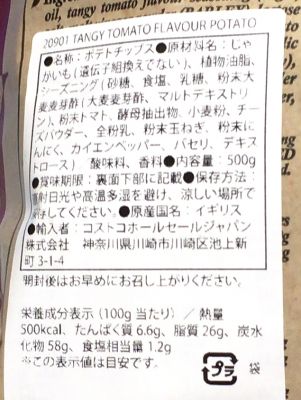 oil, tangy tomato flavour seasoning
20901 TANGY TOMATO FLAVOUR POTATO
●名称：ポテトチップス●原材料名：じゃ
がいも（遺伝子組換えでない）、植物油脂、
シーズニング（砂糖、食塩、乳糖、粉末大
麦麦芽酢（大麦麦芽酢、マルトデキストリ
ン）、粉末トマト、酵母抽出物、小麦粉、チー
ズパウダー、全粉乳、粉末玉ねぎ、粉末に
んにく、カイエンペッパー、パセリ、デキス
トロース） 酸味料、香料●内容量：500g
●賞味期限：裏面下部に記載●保存方法：
直射日光や高温多湿を避け、涼しい場所で
保存してください。●原産国名：イギリス
●輸入者：コストコホールセールジャパン
株式会社 神奈川県川崎市川崎区池上新
町3-1-4
開封後はお早めにお召し上がりください。
栄養成分表示（100g 当たり）／熱量
500kcal、たんぱく質 6.6g、脂質 26g、炭水
化物 58g、食塩相当量 1.2g
※この表示値は目安です。
プラ 袋